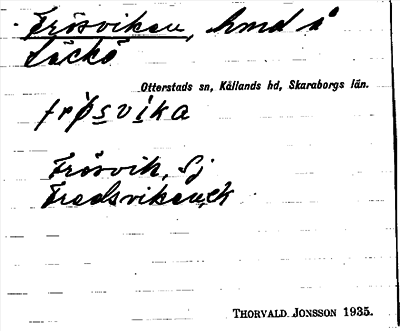 Frösviken, hmd å
Läckö
Otterstads sn, Kållands hd, Skaraborgs län.
frösvika
Frösvik, Sj
Fredsviken, ek
THORVALD JONSSON 1935.